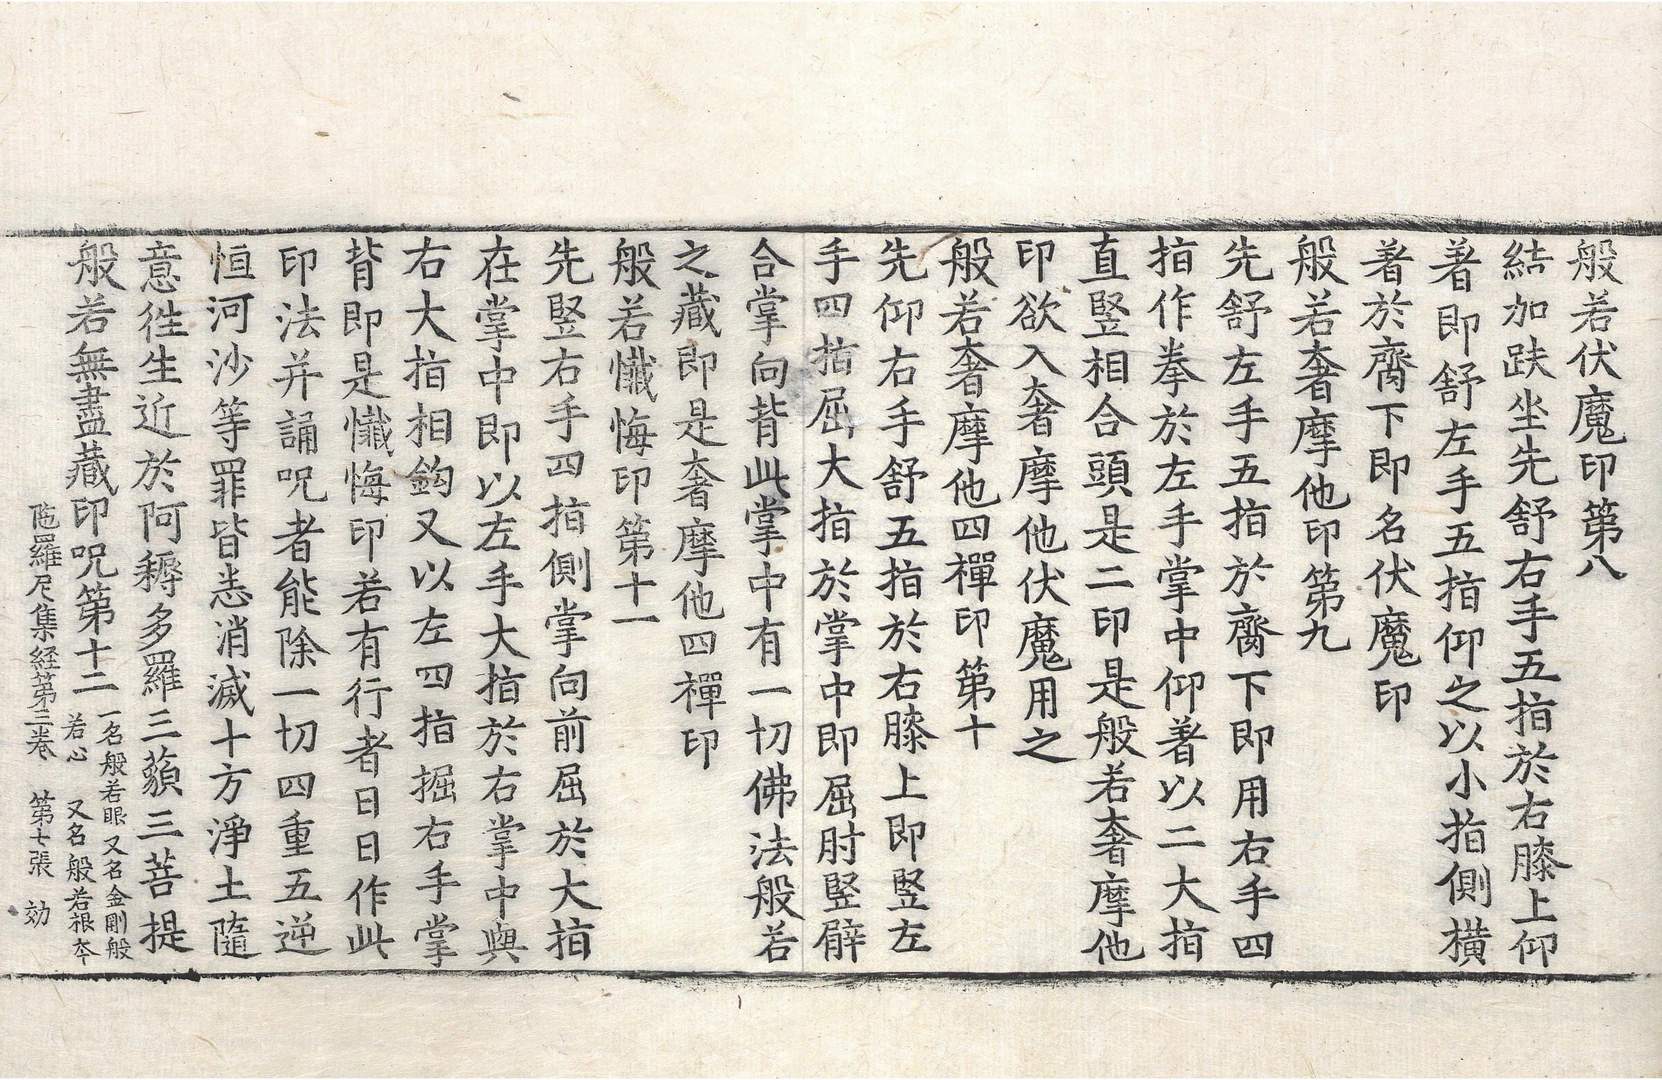 般若伏魔印第八
結加趺坐先舒右手五指於右膝上仰
著即舒左手五指仰之以小指側橫
著於齊下即名伏魔印
般若奢摩他印第九
先舒左手五指於齊下即用右手四
指作拳於左手掌中仰著以二大指
直竪相合頭是二印是般若奢摩他
印欲入奢摩他伏魔用之
般若奢摩他四禪印第十
先仰右手舒五指於右膝上即竪左
手四指屈大指於掌中即屈肘竪臂
合掌向背此掌中有一切佛法般若
之藏即是奢摩他四禪印
般若懺悔印第十一
先竪右手四指側掌向前屈於大指
在掌中即以左手大指於右掌中與
右大指相鈎又以左四指掘右手掌
背即是懺悔印若有行者日日作此
印法并誦呪者能除一切四重五逆
恒河沙等罪皆悉消滅十方淨土隨
意徃生近於阿耨多羅三藐三菩提
般若無盡藏印呪第十二 一名般若眼又名金剛般
若心 又名般若根夲
陁羅尼集経第三卷 第七張 効